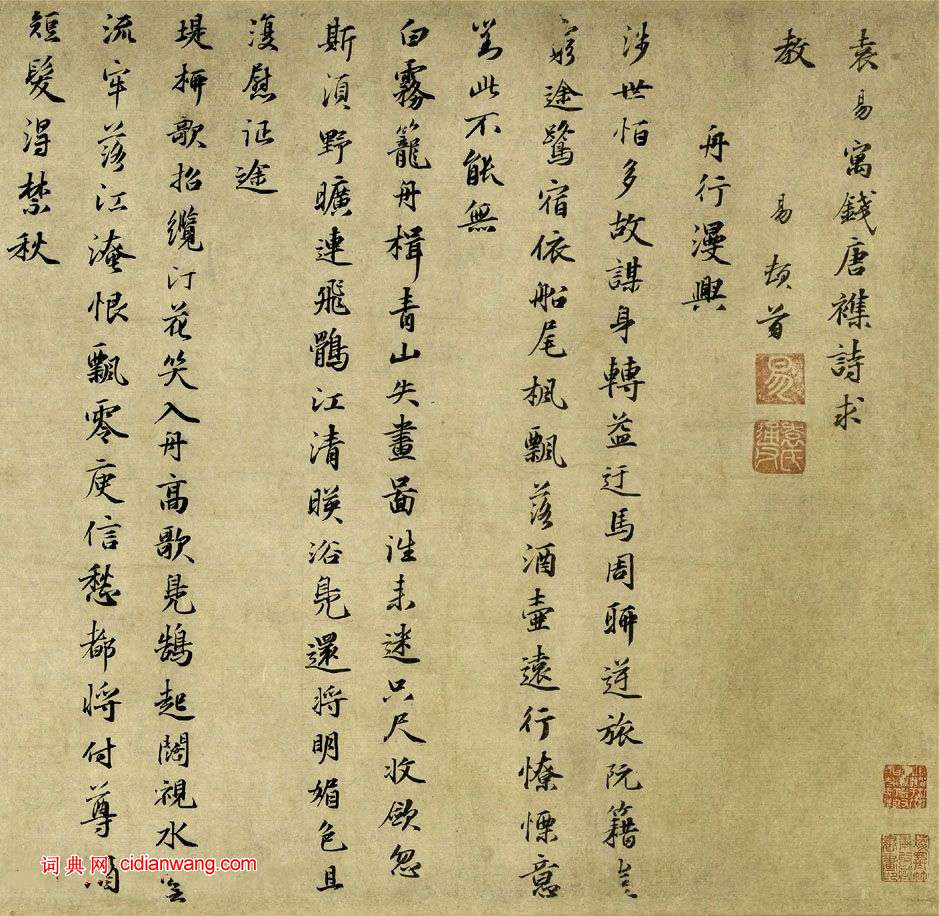 袁易寓錢唐襍詩求
教 易頓首
易
袁氏通父
舟行漫興
涉世怕多故謀身轉益迂馬周聊逆旅阮籍豈
窮途鷺宿依船尾楓飄落酒壷遠行憭慄意
對此不能無
白霧籠舟楫青山失畫啚往来迷只尺收歛忽
斯湏野曠連飛鶻江清暎浴鳬還將明媚色且
復慰征途
堤柳歌招纜汀花笑入舟高歌鳬鵠起闊視水雲
流牢落江淹恨飄零庾信愁都將付尊酒
短髮得禁秋
词典网 cidianwang.com